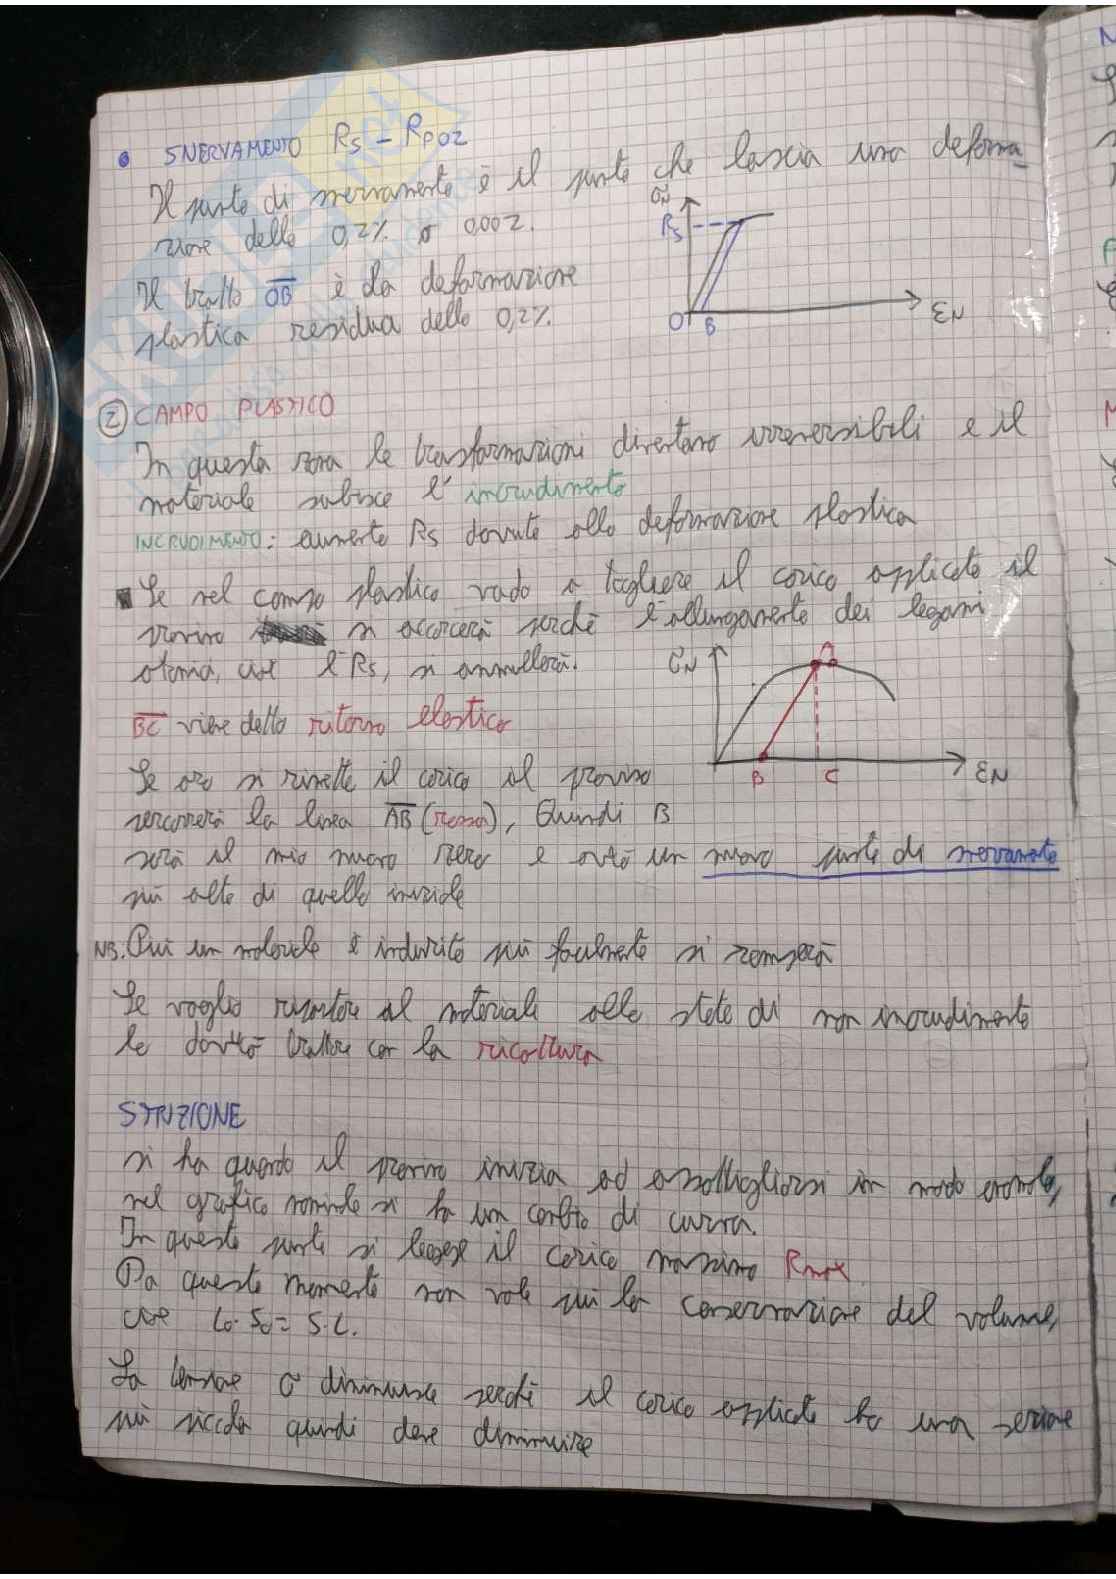 • SNERVAMENTO Rs - Rp02
Il punto di snervamento è il punto che lascia una deforma-
zione dello 0,2% o 0,002.
Il tratto OB è la deformazione
plastica residua dello 0,2%.
σN
Rs
O B
εN
② CAMPO PLASTICO
In questa zona le trasformazioni diventano irreversibili e il
materiale subisce l'incrudimento
INCRUDIMENTO: aumento Rs dovuto alla deformazione plastica
Se nel campo plastico vado a togliere il carico applicato il
provino si accorcerà perché l'allungamento dei legami
atomici, cioè l'Rs, si annullerà.
BC viene detto ritorno elastico
σN
A
B C
εN
Se ora si rimette il carico il provino
percorrerà la linea AB (rossa), Quindi B
sarà il mio nuovo zero e avrò un nuovo punto di snervamento
più alto di quello iniziale
NB. Più un materiale è indurito più facilmente si romperà
Se voglio riportare il materiale allo stato di non incrudimento
lo dovrò trattare con la ricottura
STRIZIONE
si ha quando il provino inizia ad assottigliarsi in modo anomalo,
nel grafico nominale si ha un cambio di curva.
In questo punto si legge il carico massimo Rmax
Da questo momento non vale più la conservazione del volume,
cioè L0·S0=S·L.
La tensione σ diminuisce perché il carico applicato ha una sezione
più piccola quindi deve diminuire